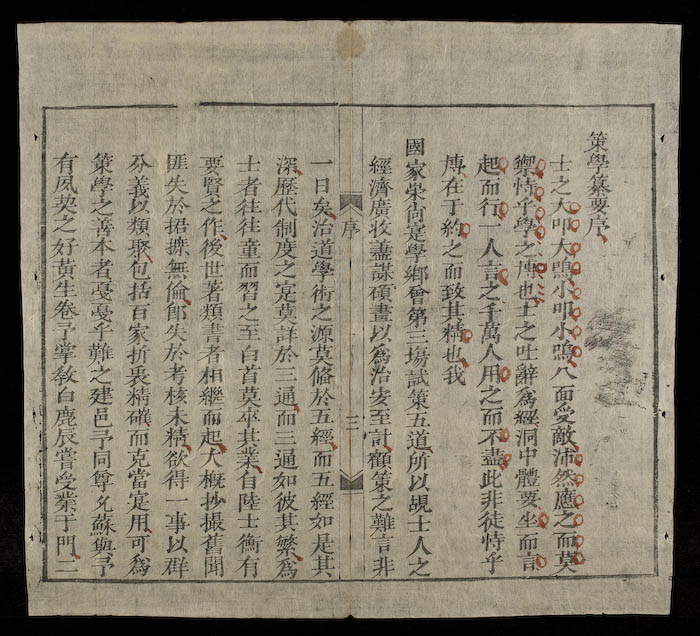 策學纂要序
士之大叩大鳴小叩小鳴八面受敵沛然應之而莫
禦恃乎學之博也士之吐辭為經洞中體要坐而言
起而行一人言之千萬人用之而不盡此非徒恃乎
博在于約之而致其精也我
國家崇尚寔學鄉會第三場試策五道所以覘士人之
經濟廣收藎謀碩畫以為治安至計顧策之難言非
一日矣治道學術之源莫備於五經而五經如是其
深歷代制度之寔莫詳於三通而三通如彼其繁為
士者往往童而習之至白首莫卒其業自陸士衡有
要覽之作後世著類書者相繼而起大概抄撮舊聞
匪失於捃摭無倫即失於考核未精欲得一事以群
分義以類聚包括百家折衷精礭而克當寔用可為
策學之善本者戞戞乎難之建邑予同尊兄蘇與予
有夙英之好黃生卷予掌教白鹿辰嘗受業于門二
序
三